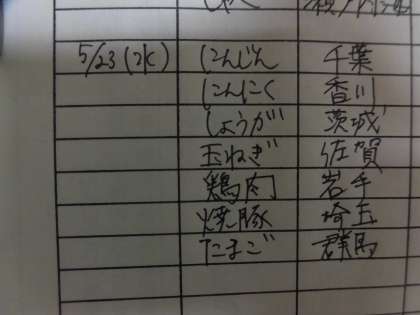 5/23(水) にんじん 千葉
にんにく 香川
しょうが 茨城
玉ねぎ 佐賀
鶏肉 岩手
焼豚 埼玉
たまご 群馬